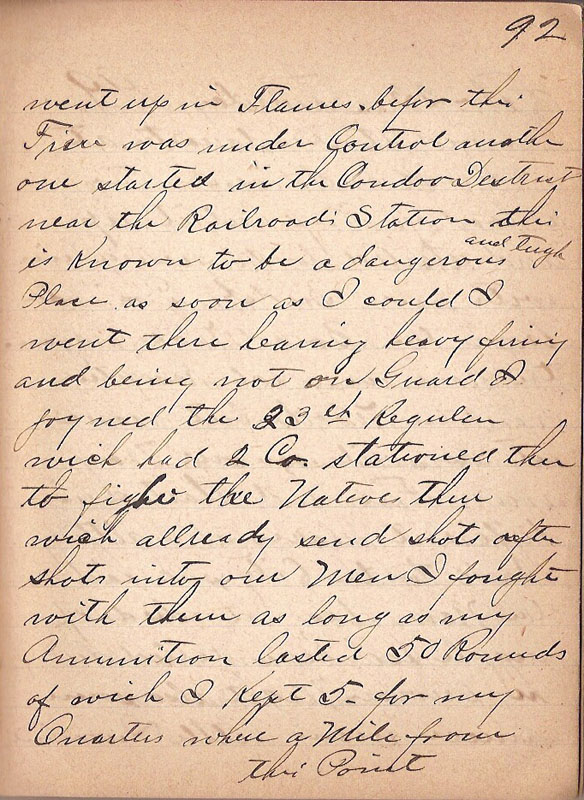 92
went up in Flames. befor this
Fire was under Control another
one started in the Condoo Destrist
near the Railroad Station this
is Known to be a dangerous and tugh
Place as soon as I could I
went there hearing heavy firing
and being not on Guard I
joyned the 23 Reguler
wich had 2 Co. stationed ther
to fight the Natives then
wich allready send shots after
shots into our Men I fought
with them as long as my
Ammunition lasted 50 Rounds
of wich I kept 5 - for my
Quarters where a Mile from
this Point